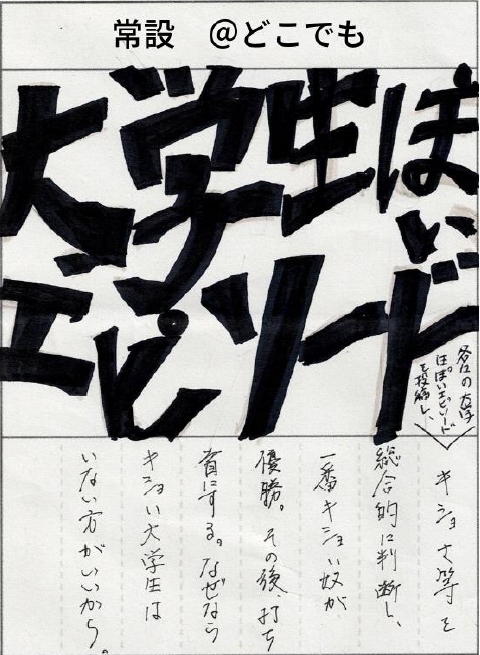 常設　@どこでも
大学生ぽい
エピソード
各々の大学
生っぽいエピソード
を投稿し、
キショさ等を
総合的に判断し、
一番キショい奴が
優勝。その後、打ち
首にする。なぜなら
キショい大学生は
いない方がいいから。